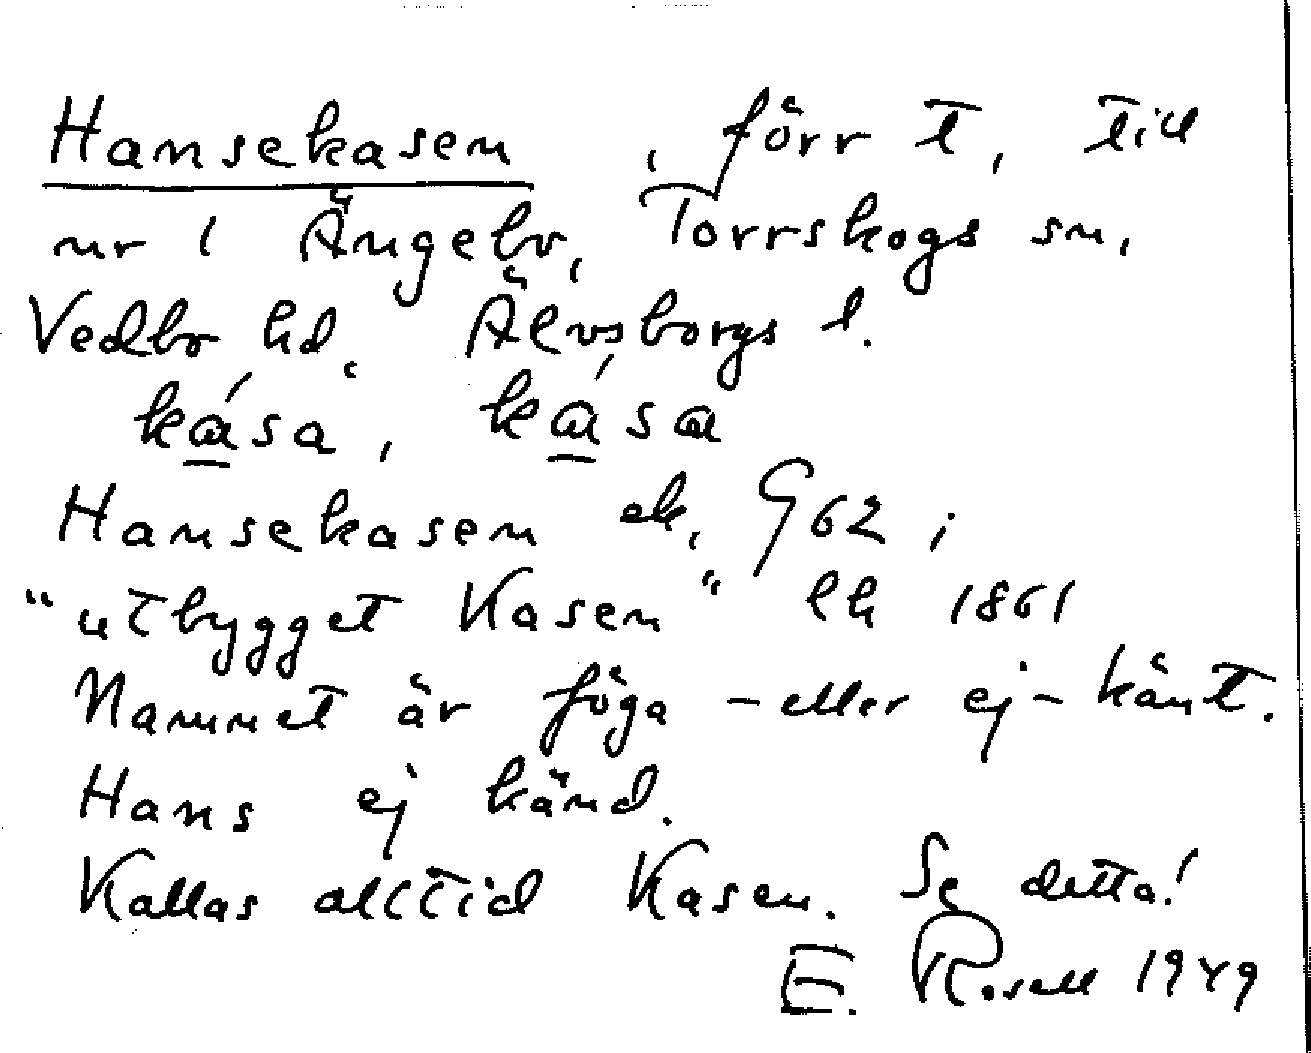 Hansekasen , förr t, till
nr 1 Ängebo, Torrskogs sn,
Vedbo hd. Älvsborgs l.
kása, kása
Hansekasen ek, G62 ;
"utbygget Kasen" lk 1861
Namnet är föga - eller ej - känt.
Hans ej känd.
Kallas alltid Kasen. Se detta!
E. Rosell 1949